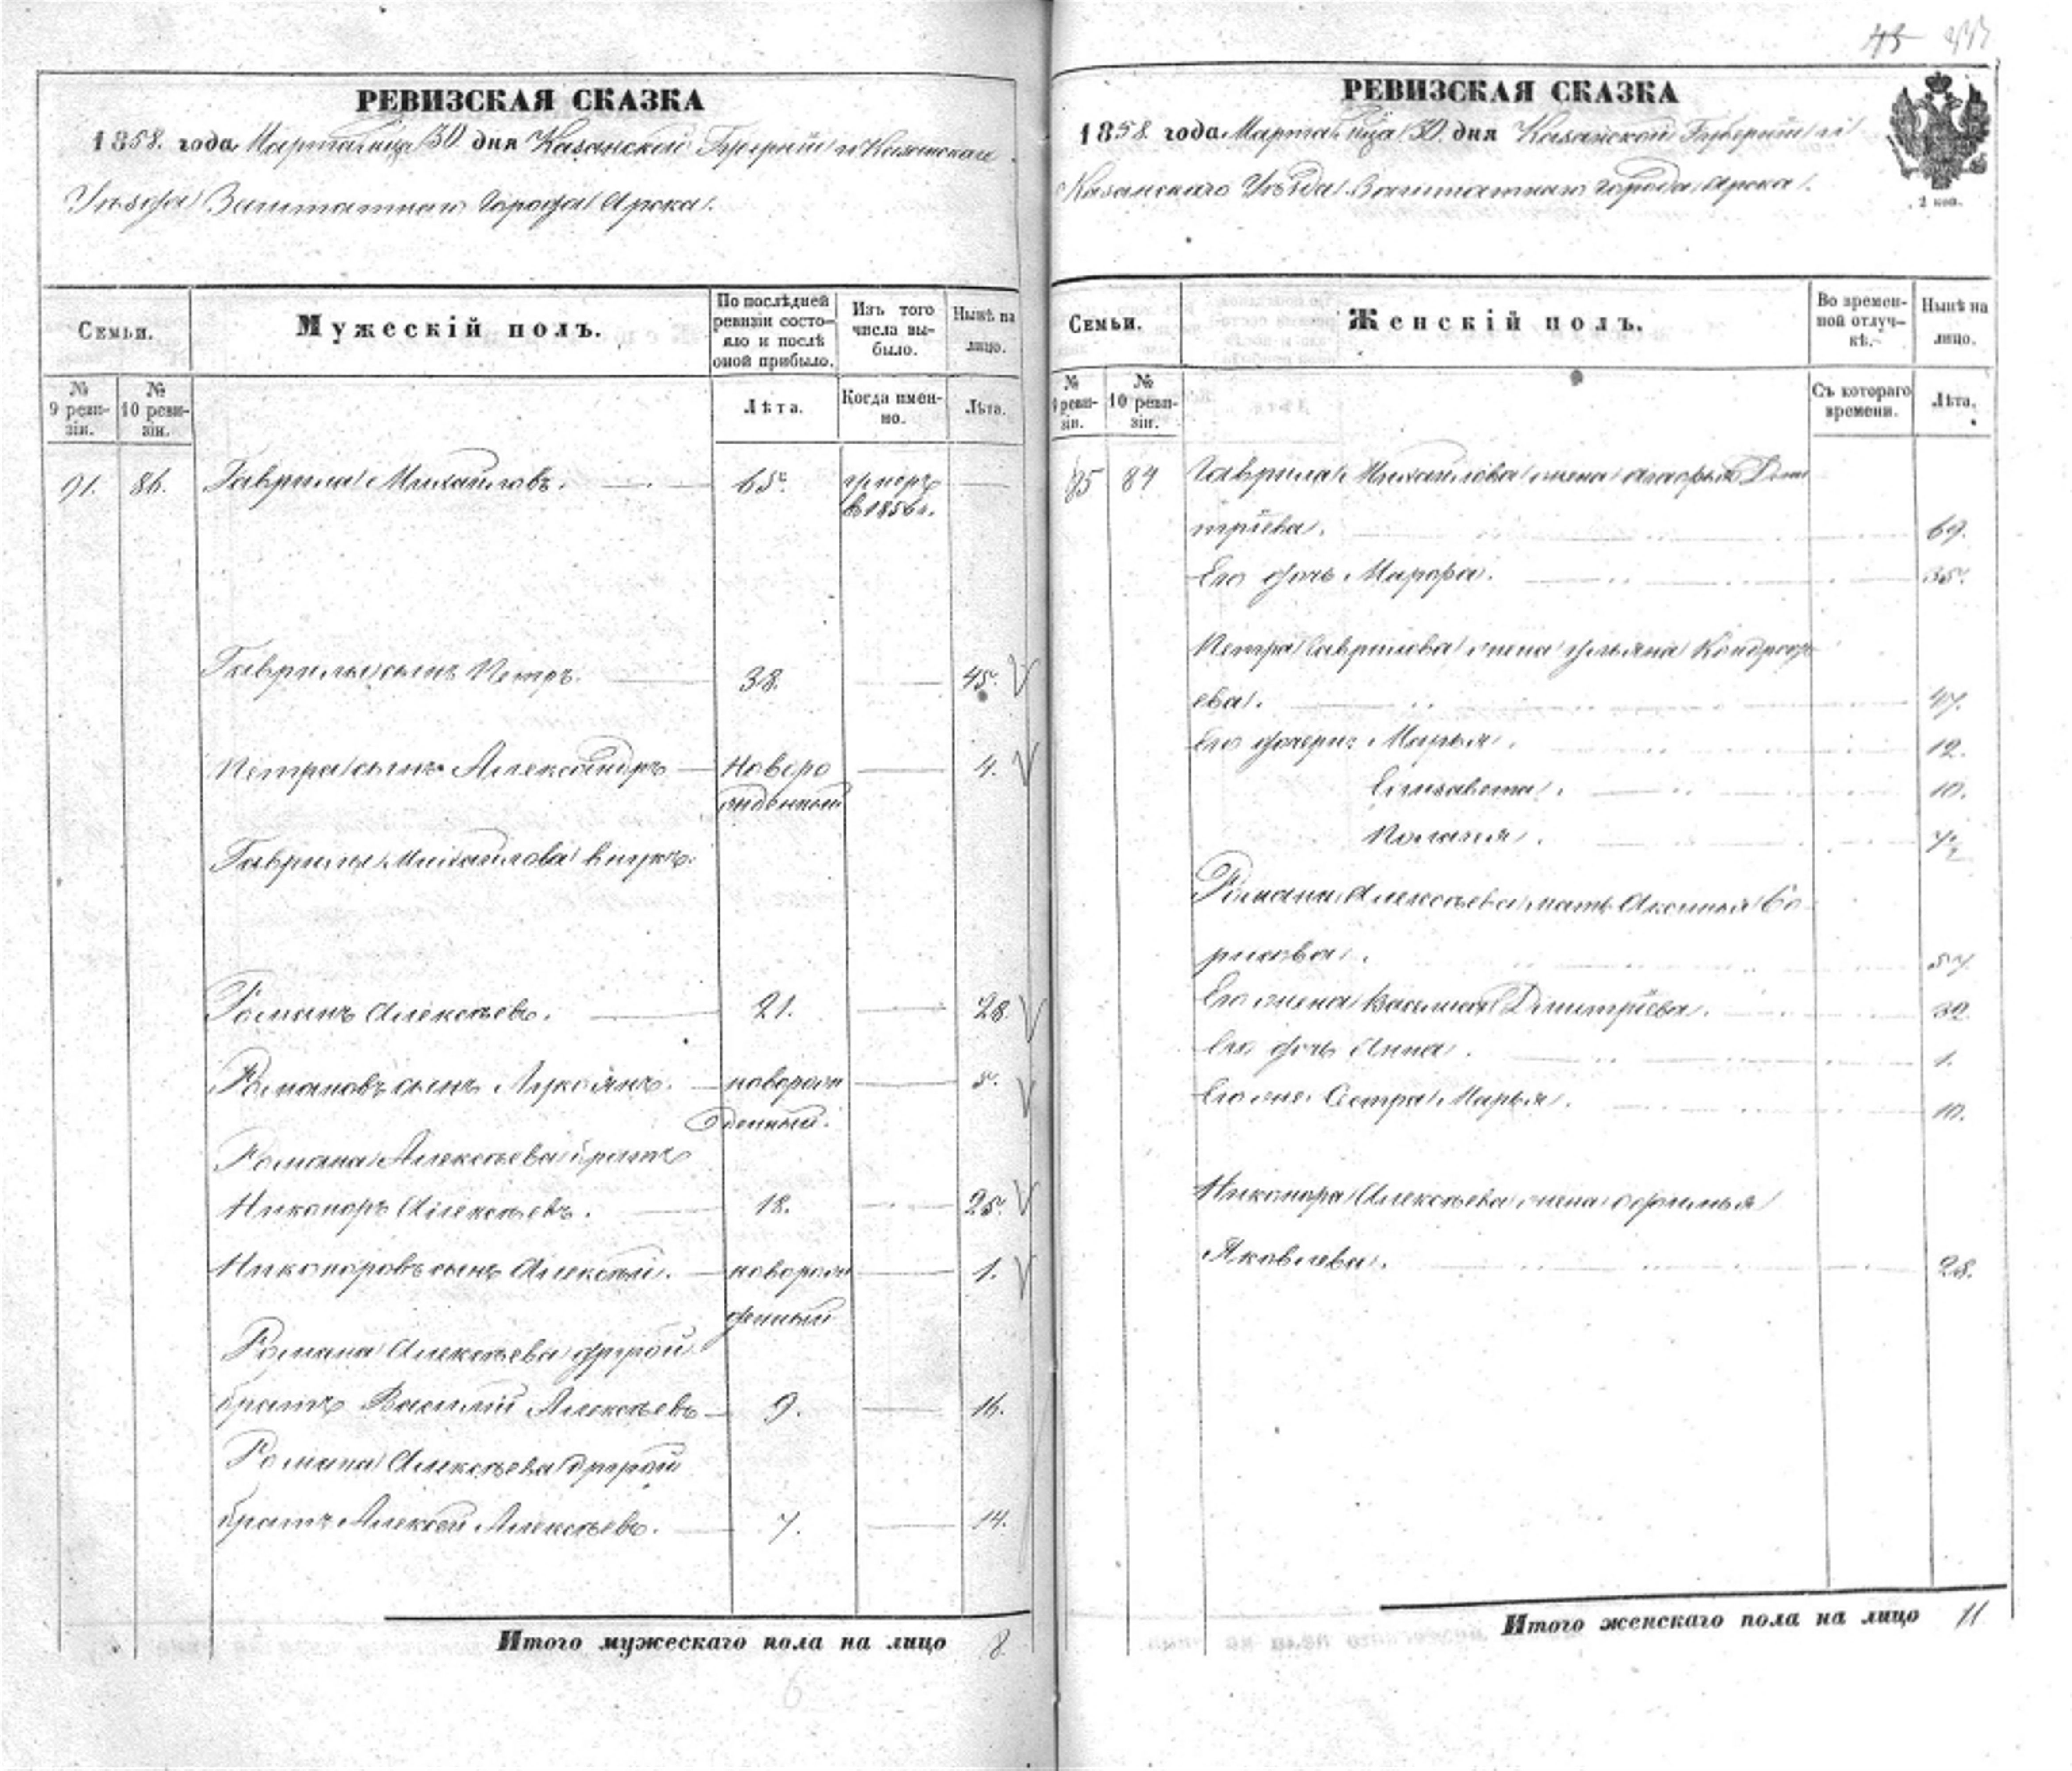 45
РЕВИЗСКАЯ СКАЗКА
1858. года Марта м-ца 30. дня Казанской Губерніи и Казанскаго
Уѣзда Заштатнаго города Арска.
Семьи.
Мужескій полъ.
По послѣдней ревизіи состояло и послѣ оной прибыло.
Изъ того числа выбыло.
Нынѣ на лицо.
№ 9 ревизіи.
№ 10 ревизіи.
Лѣта.
Когда именно.
Лѣта.
91. 86. Гаврила Михайловъ. 65. умеръ
въ 1856 г.
Гаврилы сынъ Петръ. 38. 45.
Петра сынъ Александръ Новоро 4.
жденный
Гаврилы Михайлова внукъ.
Романъ Алексѣевъ. 21. 28.
Романовъ сынъ Лукоянъ. новорож 5.
денный.
Романа Алексѣева братъ
Никоноръ Алексѣевъ. 18. 25.
Никоноровъ сынъ Алексѣй. новорож 1.
денный
Романа Алексѣева другой
братъ Василій Алексѣевъ 9. 16.
Романа Алексѣева другой
братъ Алексѣй Алексѣевъ. 7. 14.
Итого мужескаго пола на лицо 8.
6
РЕВИЗСКАЯ СКАЗКА
1858. года Марта м-ца 30. дня Казанской Губерніи и
Казанскаго Уѣзда Заштатнаго города Арска.
2 коп.
Семьи.
Женскій полъ.
Во временной отлучкѣ.
Нынѣ на лицо.
№ 9 ревизіи.
№ 10 ревизіи.
Съ котораго времени.
Лѣта.
85 84 Гаврила Михайлова жена Агафья Дми
тріева. 69.
Его дочь Марфа. 35.
Петра Гаврилова жена Ульяна Кондрать
ева. 47.
Его дочери: Марья. 12.
Елизавета. 10.
Пелагея.
Романа Алексѣева мать Аксинья Бо
рисова. 57.
Его жена Васьлиса Дмитріева. 32.
Его дочь Анна. 1.
Его же Сестра Марья. 10.
Никонора Алексѣева жена Ефимья
Яковлева. 28.
Итого женскаго пола на лицо 11